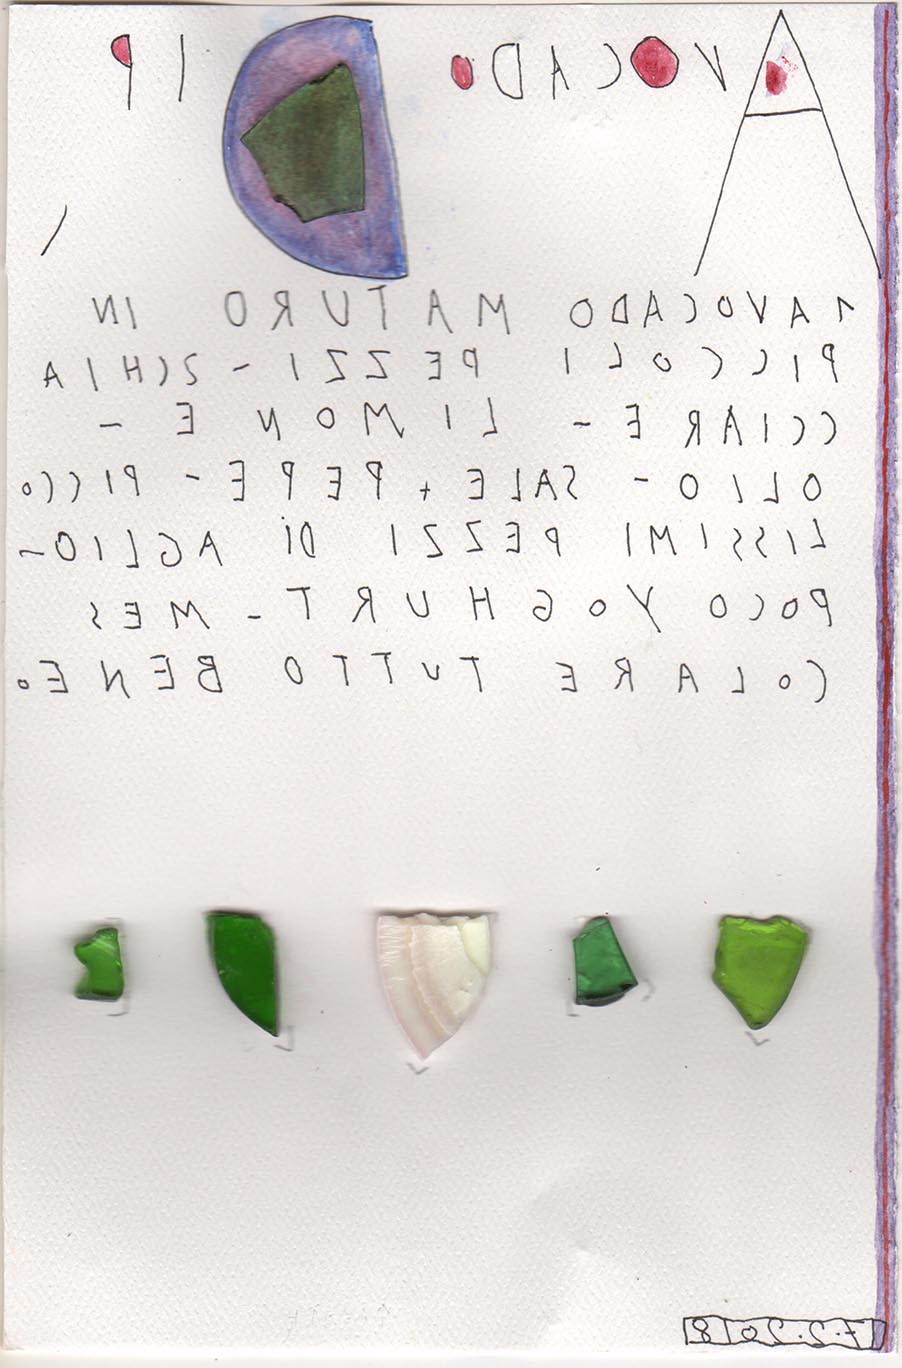 AVOCADO DIP
1 AVOCADO MATURO IN
PICCOLI PEZZI - SCHIA
CCIARE - LIMONE -
OLIO - SALE + PEPE - PICCO
LISSIMI PEZZI DI AGLIO -
POCO YOGHURT - MES
COLARE TUTTO BENE.
7.2.2018